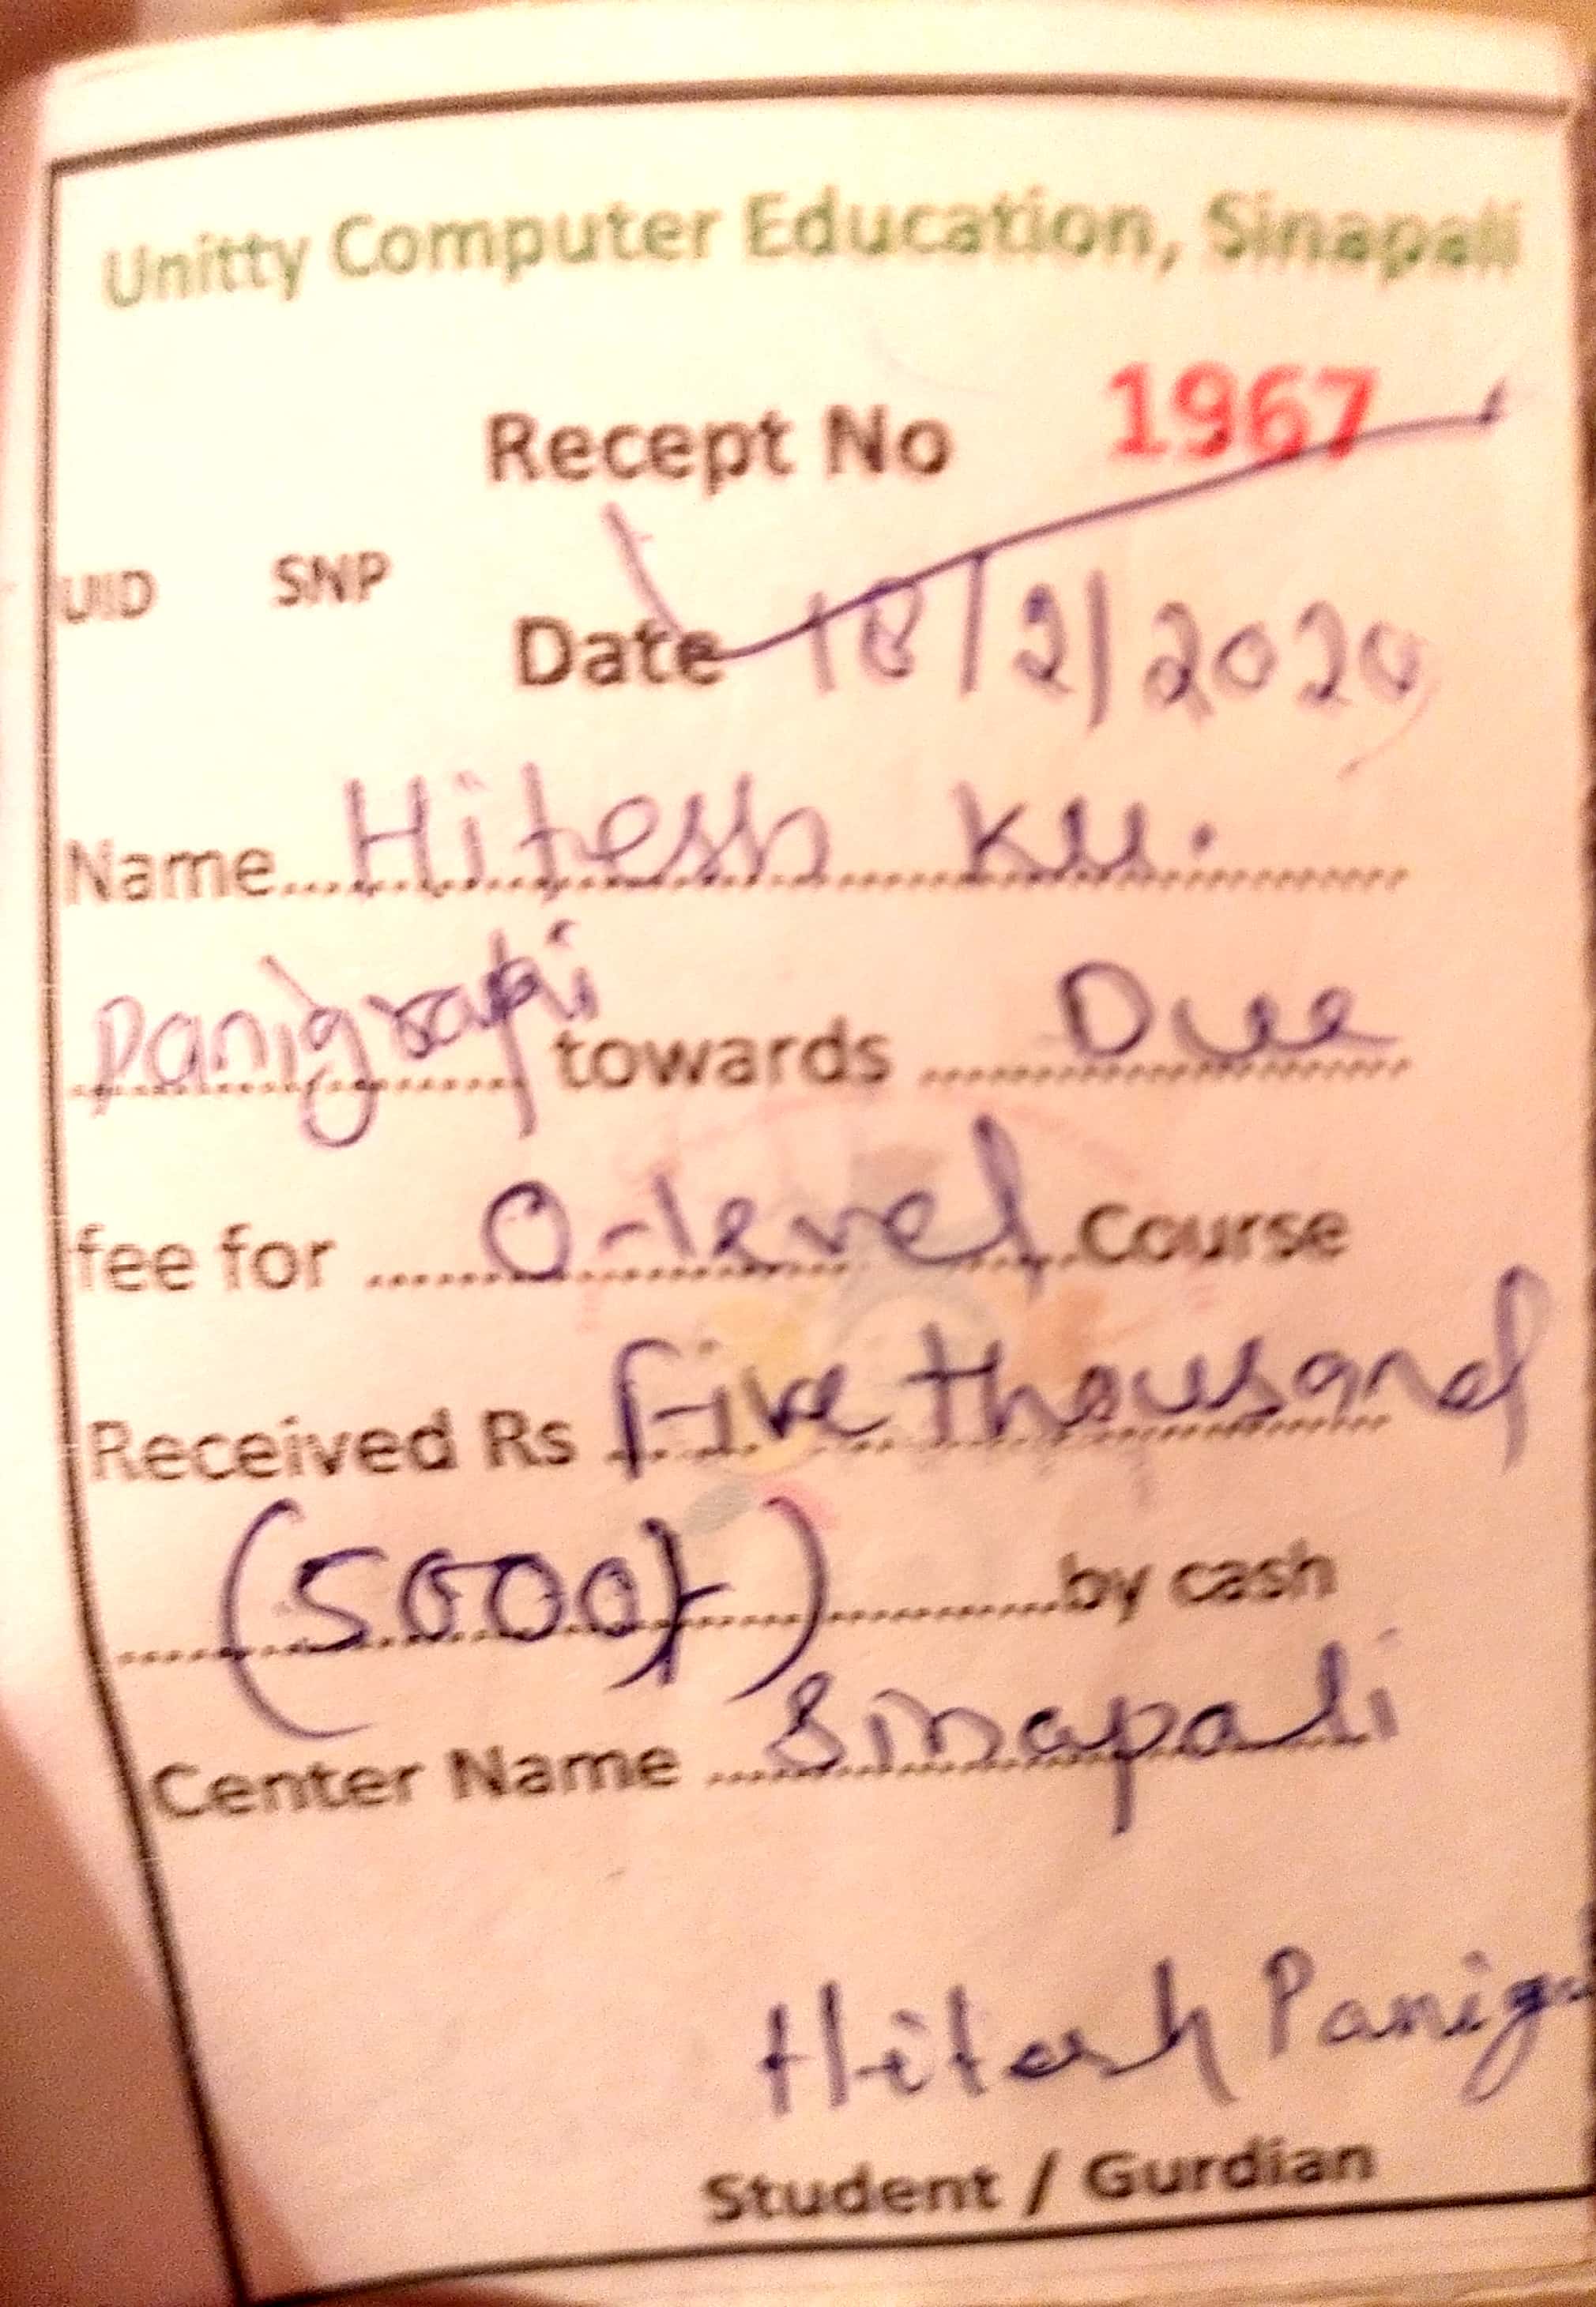 Unitty Computer Education, Sinapali
Recept No 1967
UID SNP
Date 18/2/2020
Name Hitesh Ku.
Panigrahi towards Due
fee for O-level Course
Received Rs Five thousand
(5000/-) by cash
Center Name Sinapali
Hitesh Panig
Student / Gurdian